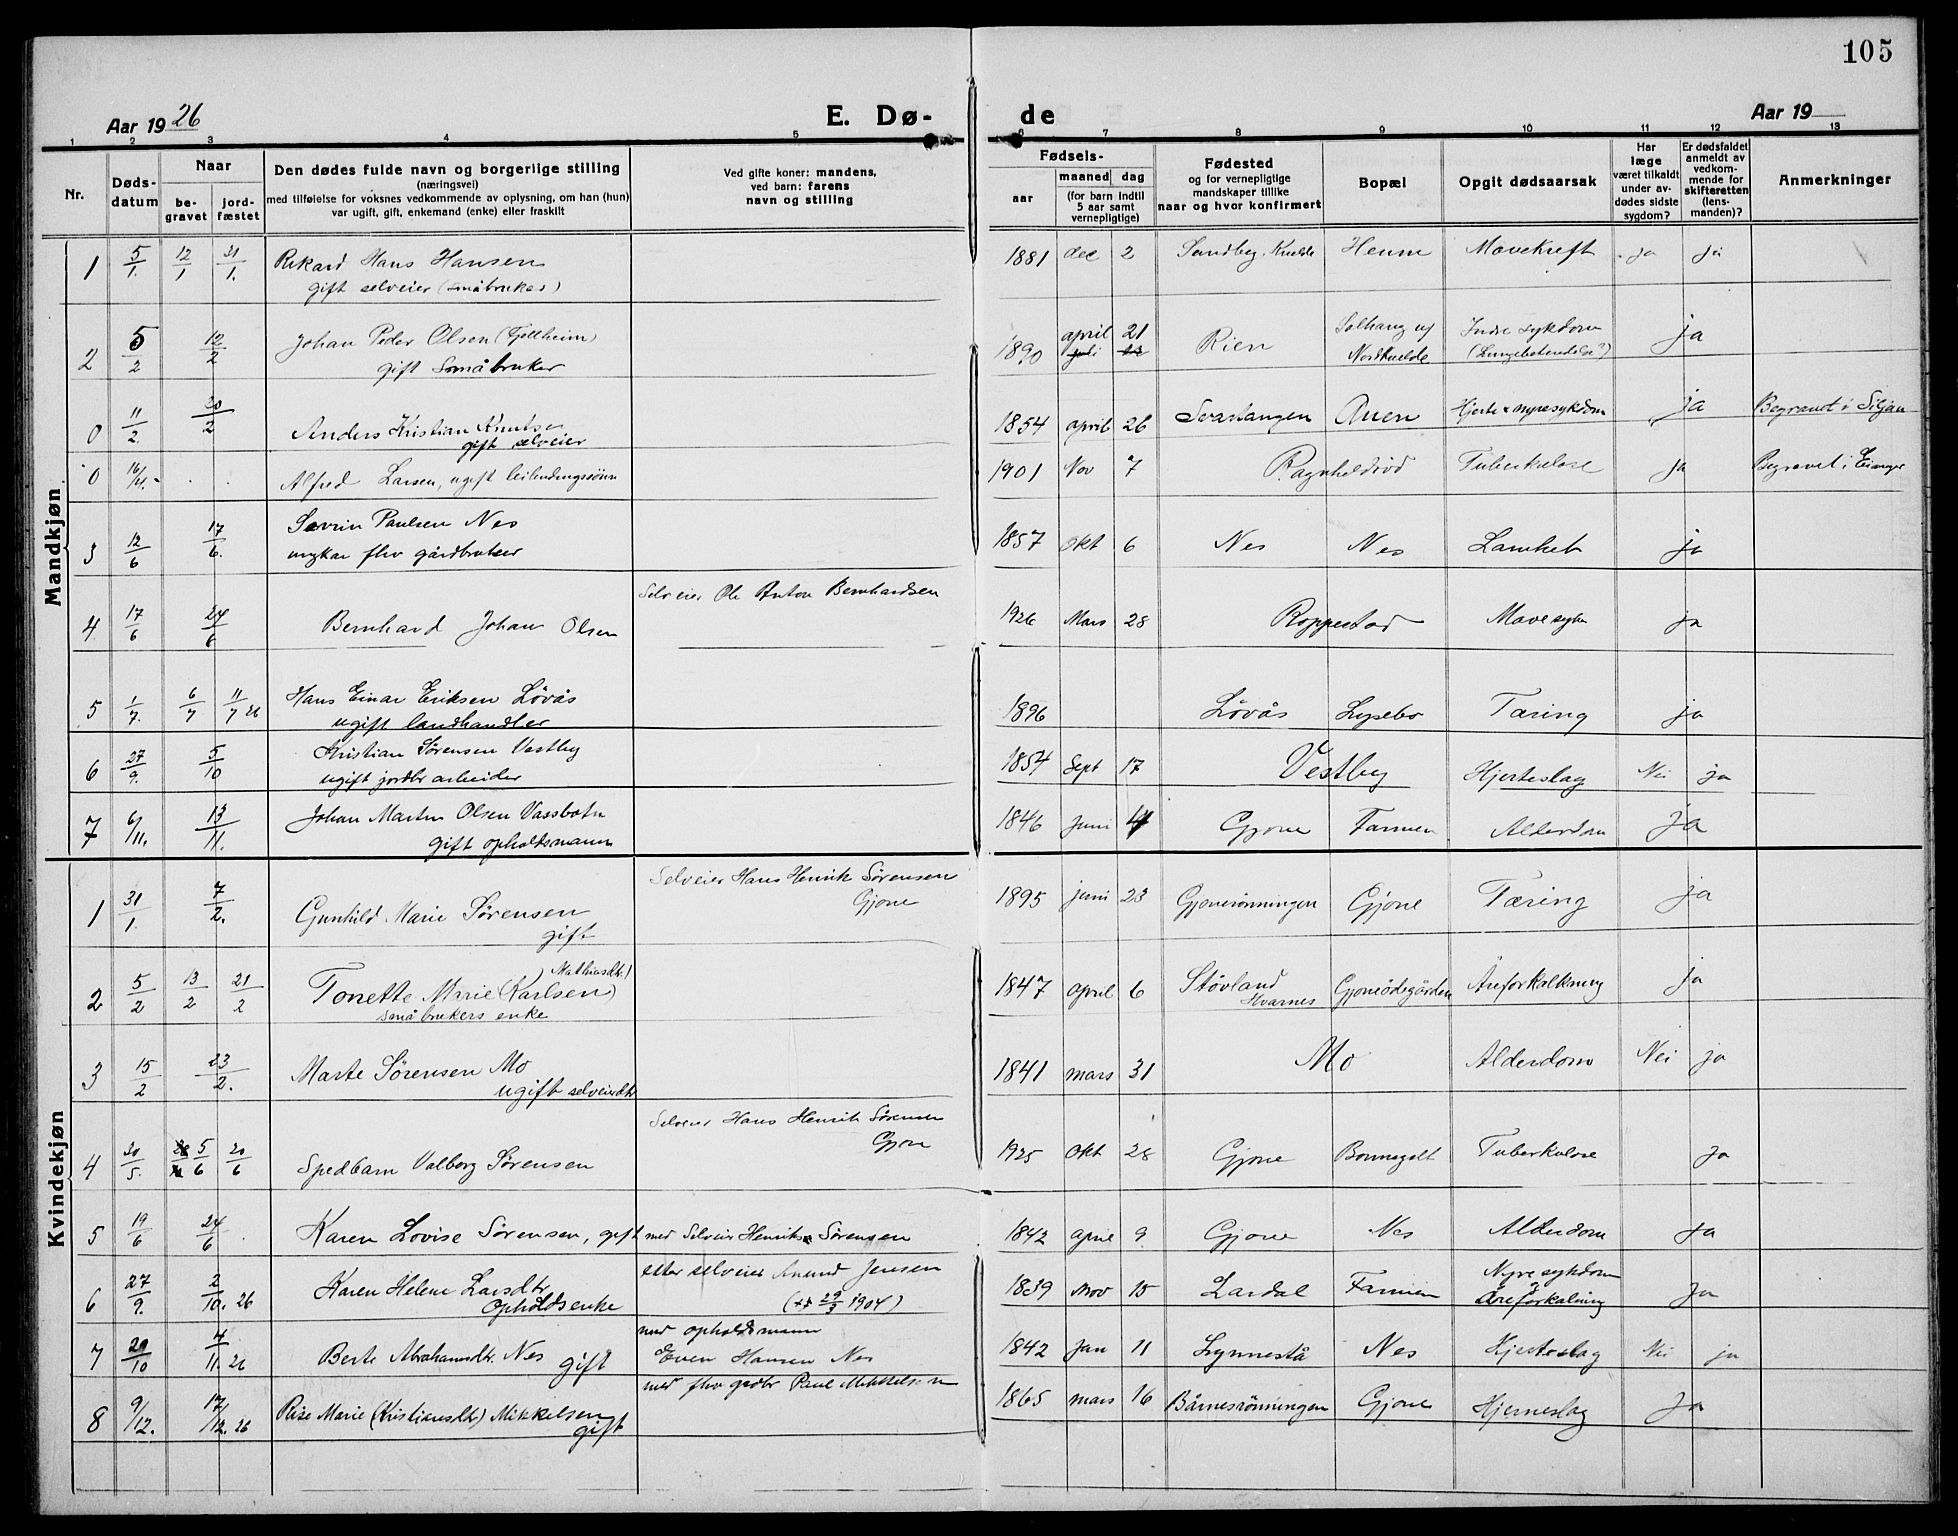 105
Aar 1926
E. Dø-
de
Aar 19
1 2 3 4 5 6 7 8 9 10 11 12 13
Nr.
Døds-
datum
Naar
be-
gravet
jord-
fæstet
Den dødes fulde navn og borgerlige stilling
(næringsvei)
med tilføielse for voksnes vedkommende av oplysning, om han (hun)
var ugift, gift, enkemand (enke) eller fraskilt
Ved gifte koner: mandens,
ved barn: farens
navn og stilling
Fødsels-
aar
maaned
dag
(for barn indtil
5 aar samt
vernepligtige)
Fødested
og for vernepligtige
mandskaper tillike
naar og hvor konfirmert
Bopæl
Opgit dødsaarsak
Har
læge
været tilkaldt
under av-
dødes sidste
sygdom?
Er dødsfaldet
anmeldt av
vedkom-
mende for
skifteretten
(lens-
manden)?
Anmerkninger
Mandkjøn
1 5/1. 12/1 31/1. Rikard Hans Hansen 1881 dec 2 Sandbeg. Kvelde Heum Mavekreft ja ja
gift selveier (småbruker)
2 5/2 12/2 Johan Peder Olsen (Fjellheim) 1890 april 21 Rien Solhaug u/ Nordkvelde Indre sykdom ja
juli
gift Småbruker (Lungebetendelse?)
0 11/2. 20/2 Anders Kristian Knutsen 1854 april 26 Svartangen Auen Hjerte & nyresykdom ja Begravet i Siljan
gift selveier
0 16/4. Alfred Larsen, ugift leilendingssønn 1901 Nov 7 Ragnhildrød Tuberkulose ja Begravet i Eidanger
3 12/6 17/6. Søvrin Paulsen Nes 1857 Okt 6 Nes Nes Lamhet ja
ungkar fhv gårdbruker
4 17/6 24/6 Bernhard Johan Olsen Selveier Ole Anton Bernhardsen 1926 Mars 28 Roppestad Mavesyke ja
5 1/7. 6/7 11/7 26 Hans Einar Eriksen Løvås 1896 Løvås Lysebo Tæring ja
ugift landhandler
6 27/9. 5/10 Kristian Sørensen Vestby 1854 Sept 17 Vestby Hjerteslag Nei ja
ugift jordbr arbeider
7 6/11. 13/11. Johan Martin Olsen Vassbotn 1846 Juni 4 Gjone Farmen Alderdom ja
gift opholdsmann
Kvindekjøn
1 31/1. 7/2. Gunhild Marie Sørensen Selveier Hans Henrik Sørensen 1895 juni 23 Gjonerønningen Gjone Tæring ja
gift Gjone
2 5/2 13/2 21/2 Tonette Marie (Karlsen) Mathiasdtr.) 1847 april 6 Støvland Hvarnes Gjoneødegården Åreforkalkning ja
småbrukers enke
3 15/2 23/2. Marte Sørensen Mo 1841 mars 31 Mo Alderdom Nei ja
ugift selveierdtr
4 30/5. 5/6 20/6 Spedbarn Valborg Sørensen Selveier Hans Henrik Sørensen 1925 Okt 28 Gjone Bonnegolt Tuberkulose ja
Gjone
5 19/6 24/6 Karen Lovise Sørensen, gift med Selveier Henrik Sørensen 1842 april 9 Gjone Nes Alderdom ja
6 27/9. 2/10. 26 Karen Helene Larsdtr. efter selveier Amund Jensen 1839 Nov 15 Lardal Farmen Nyresykdom ja
Opholdsenke († 29/3 1904) Åreforkalning
7 20/10 4/11. 26 Berte Abrahamsdtr. Nes gift med opholdsmann 1842 Jan 11 Lynnestå Nes Hjerteslag Nei ja
Even Hansen Nes
8 9/12. 17/12. 26 Marie (Kristiansdtr) Mikkelsen med fhv grdbr Paul Mikkelsen 1865 mars 16 Bårnesrønningen Gjone Hjerneslag Ja
gift